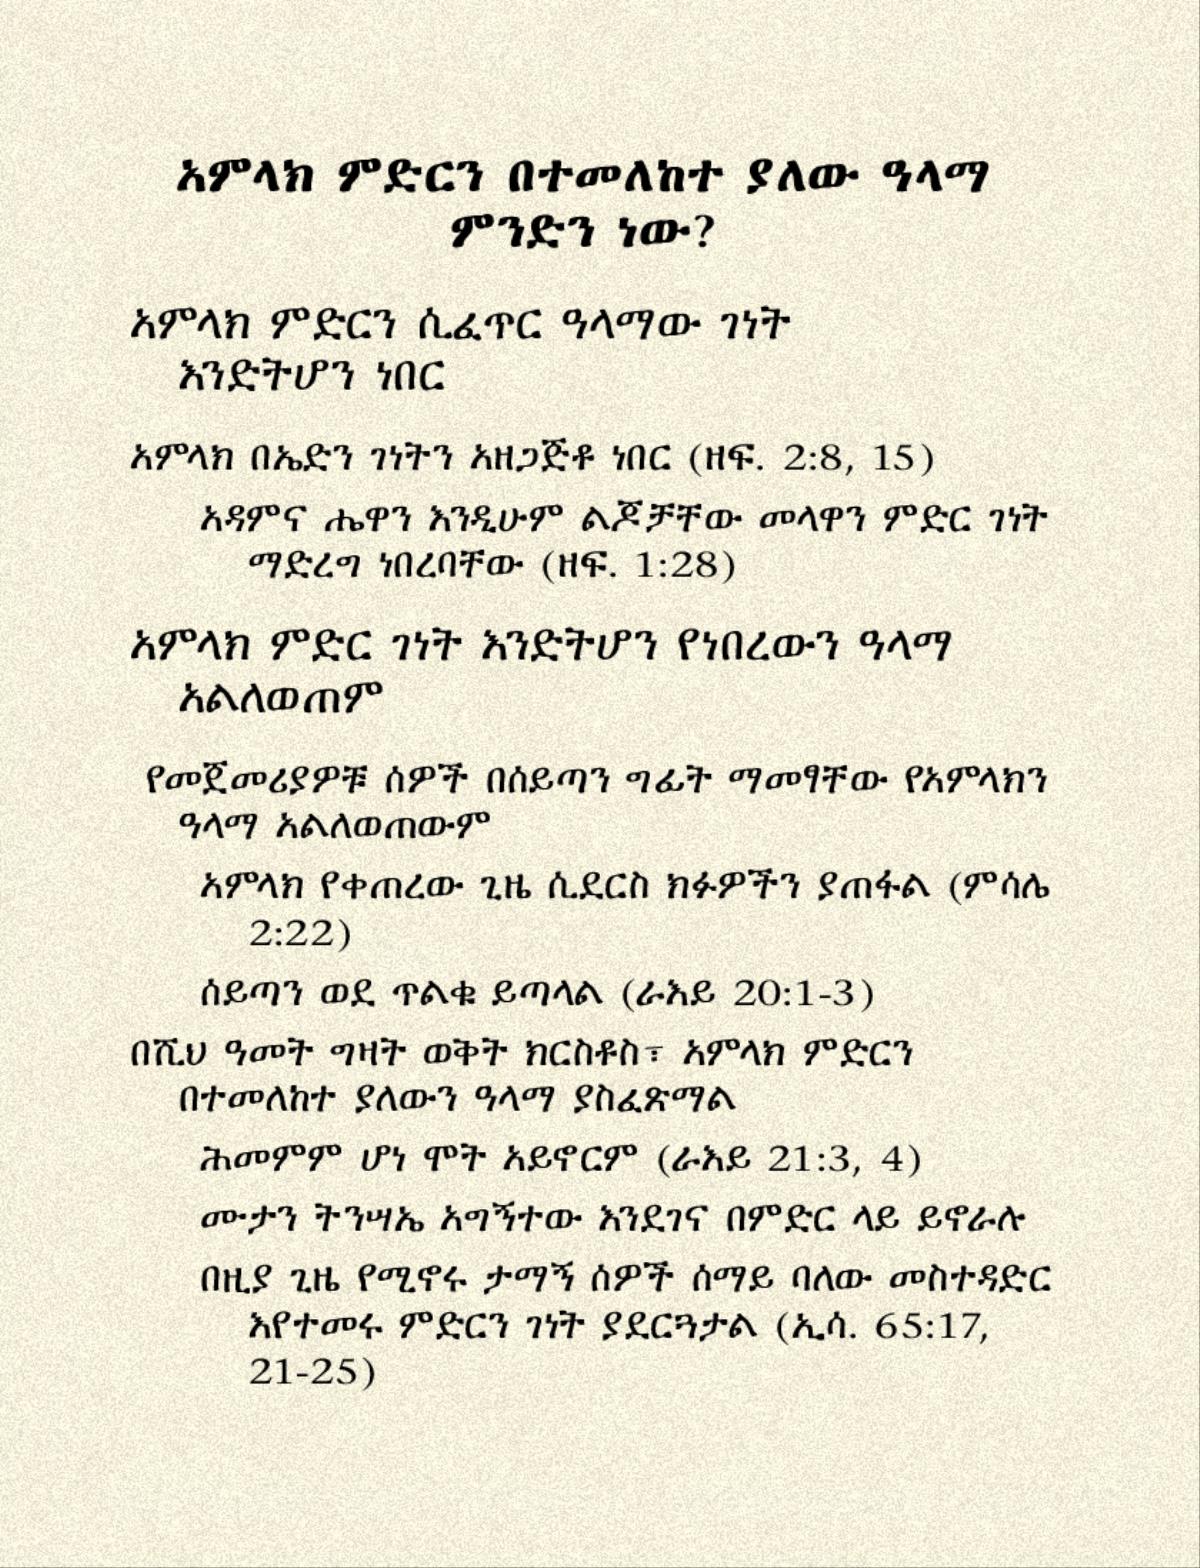 አምላክ ምድርን በተመለከተ ያለው ዓላማ
ምንድን ነው?
አምላክ ምድርን ሲፈጥር ዓላማው ገነት
እንድትሆን ነበር
አምላክ በኤድን ገነትን አዘጋጅቶ ነበር (ዘፍ. 2:8, 15)
አዳምና ሔዋን እንዲሁም ልጆቻቸው መላዋን ምድር ገነት
ማድረግ ነበረባቸው (ዘፍ. 1:28)
አምላክ ምድር ገነት እንድትሆን የነበረውን ዓላማ
አልለወጠም
የመጀመሪያዎቹ ሰዎች በሰይጣን ግፊት ማመፃቸው የአምላክን
ዓላማ አልለወጠውም
አምላክ የቀጠረው ጊዜ ሲደርስ ክፉዎችን ያጠፋል (ምሳሌ
2:22)
ሰይጣን ወደ ጥልቁ ይጣላል (ራእይ 20:1-3)
በሺህ ዓመት ግዛት ወቅት ክርስቶስ፣ አምላክ ምድርን
በተመለከተ ያለውን ዓላማ ያስፈጽማል
ሕመምም ሆነ ሞት አይኖርም (ራእይ 21:3, 4)
ሙታን ትንሣኤ አግኝተው እንደገና በምድር ላይ ይኖራሉ
በዚያ ጊዜ የሚኖሩ ታማኝ ሰዎች ሰማይ ባለው መስተዳድር
እየተመሩ ምድርን ገነት ያደርጓታል (ኢሳ. 65:17,
21-25)